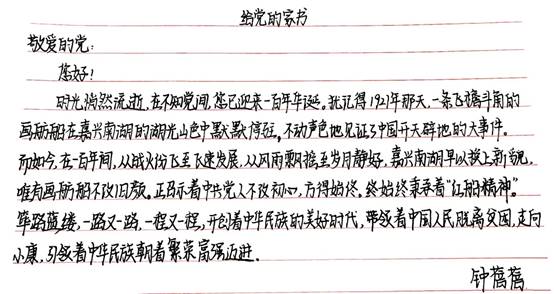 给党的家书
敬爱的党:
您好!
时光悄然流逝,在不知觉间,您已迎来一百年华诞。犹记得1921年那天,一条飞檐斗角的
画舫船在嘉兴南湖的湖光山色中默默停驻。不动声色地见证了中国开天辟地的大事件。
而如今,在一百年间,从战火纷飞至飞速发展,从风雨飘摇至岁月静好,嘉兴南湖早以换上新貌,
唯有画舫船不改旧颜。正昭示着中共党人不改初心,方得始终。终始终秉承着“红船精神”。
筚路蓝缕,一路又一路,一程又一程,开创着中华民族的美好时代,带领着中国人民脱离贫困,走向
小康,引领着中华民族朝着繁荣富强迈进.
钟蕅蕅